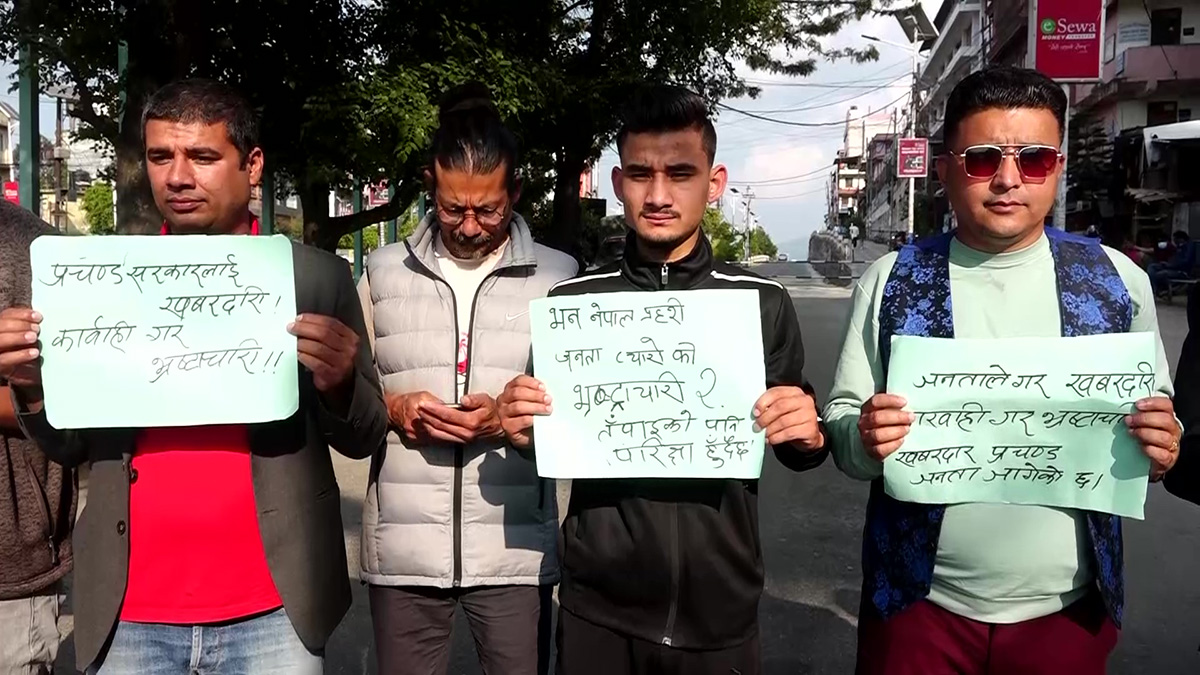 प्रचण्ड सरकारलाई
खबरदारि!
कार्वाही गर
भ्रष्टाचारी!!
भन नेपाल प्रहरी
जनता
को
भ्रष्ट्राचारी?
तँपाइको पनि
परिक्षा हुँदैछ!
जनताले गर खबरदारी
गर
खबरदार प्रचण्ड
जनता जागेको छ।
eSewa
MONEY TRANSFER